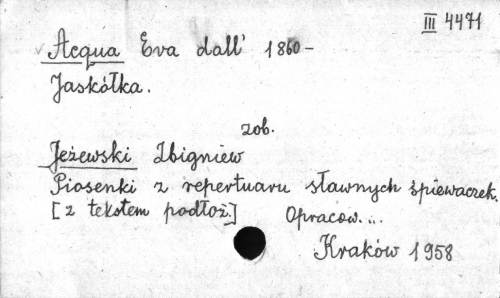 III 4471
Acqua Eva dall' 1860-
Jaskółka.
zob.
Jeżewski Zbigniew
Piosenki z repertuaru sławnych śpiewaczek.
[z tekstem podłoż.] Opracow...
Kraków 1958